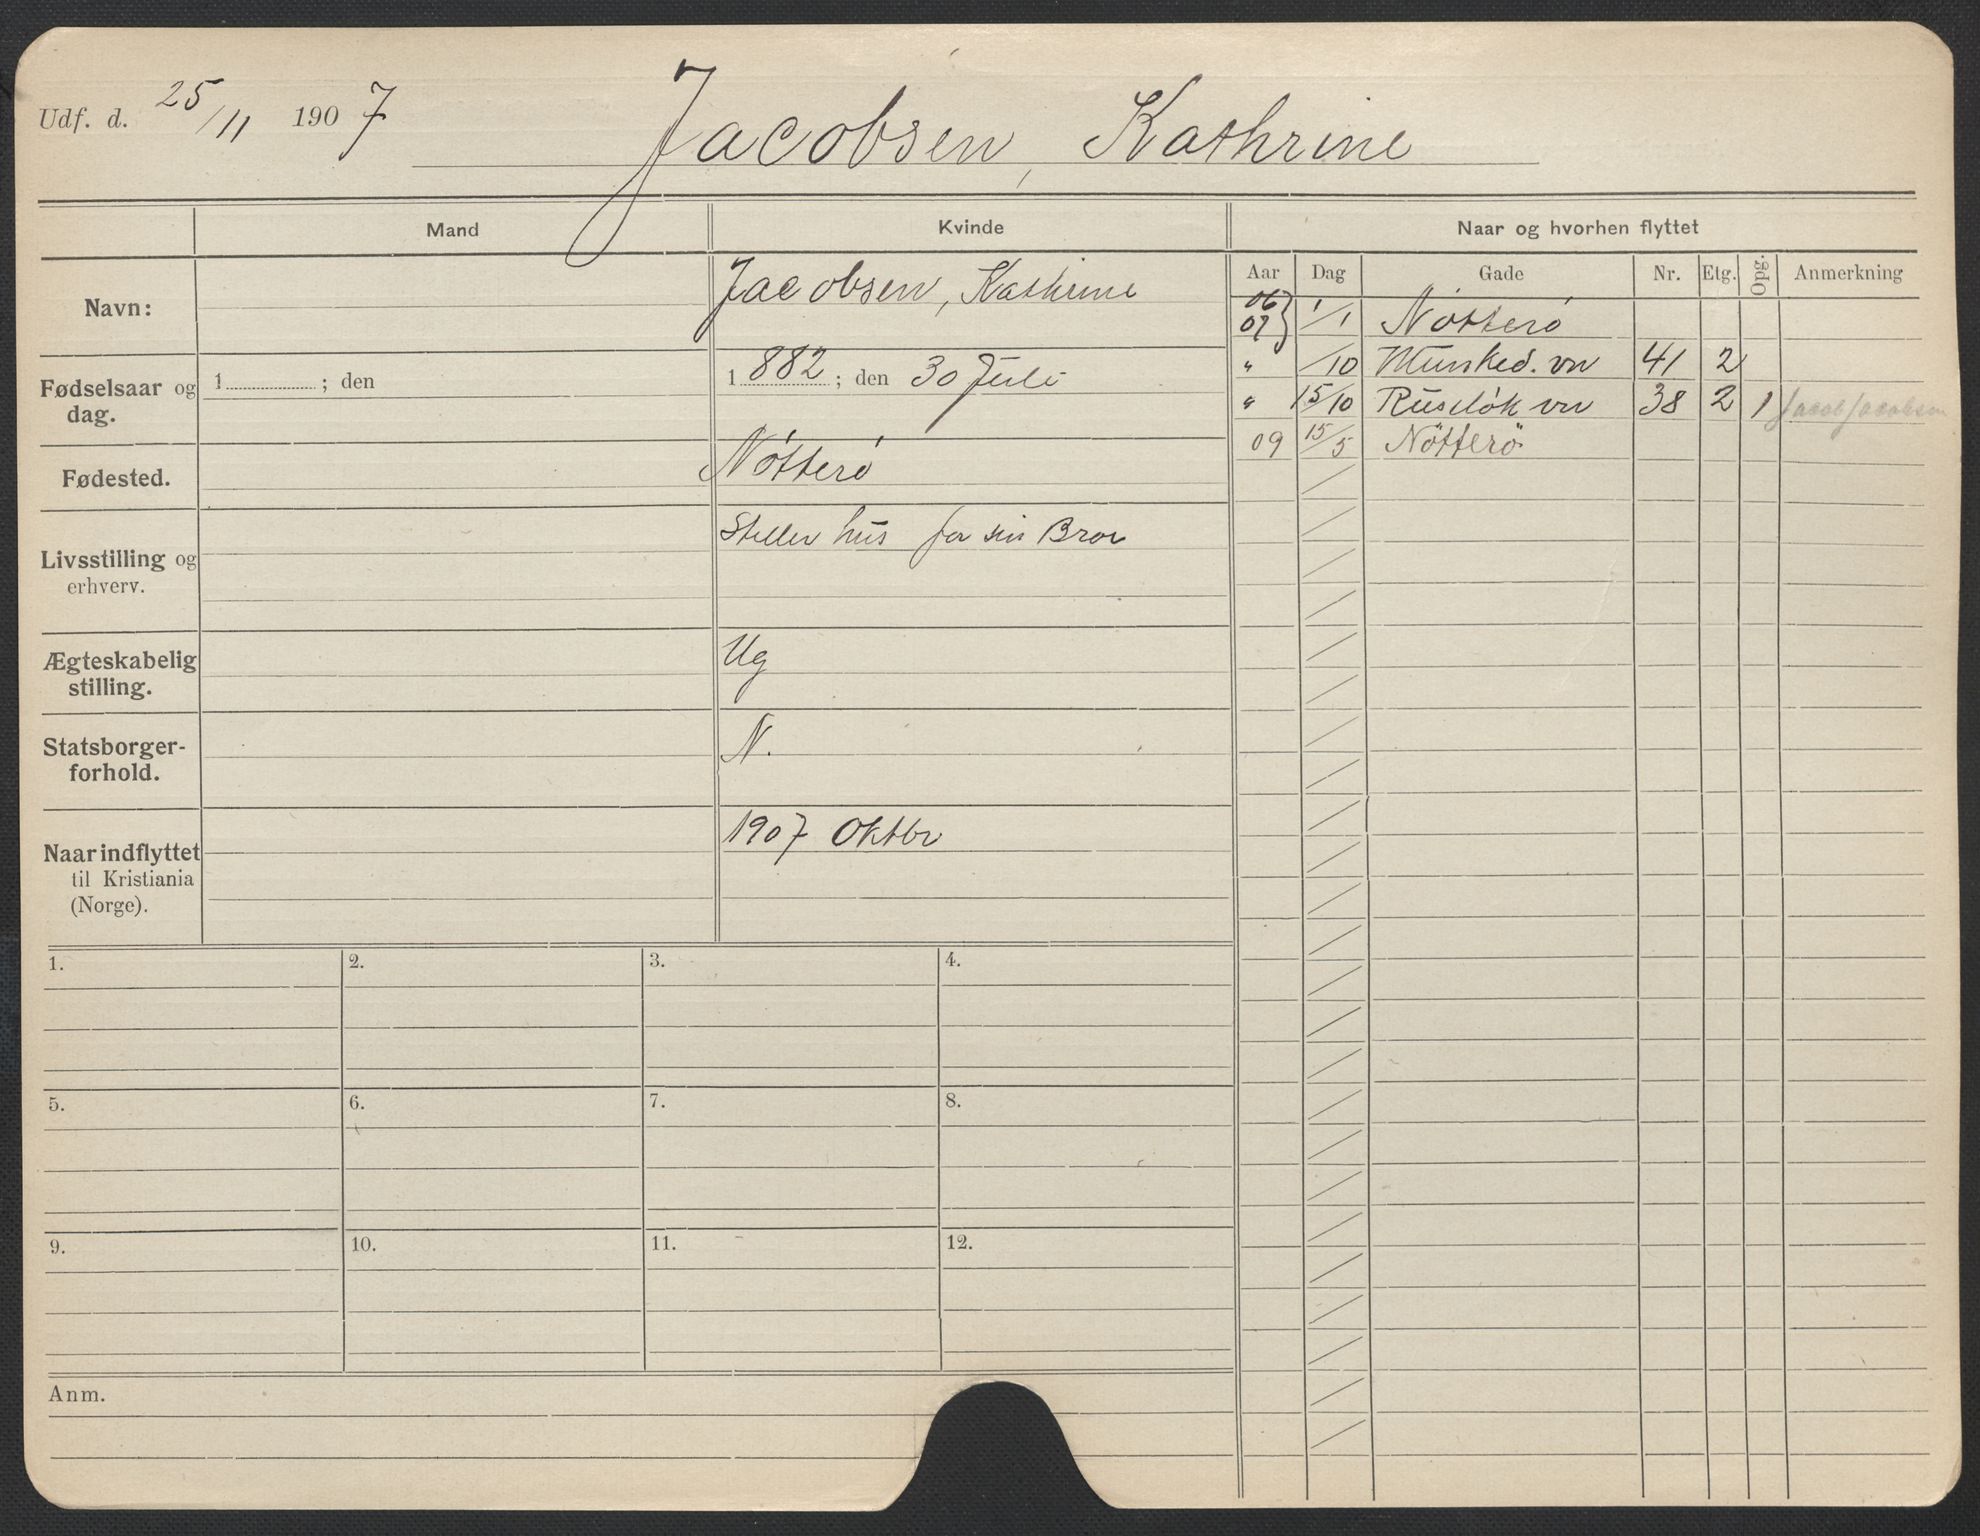 Udf. d. 25/11 1907
Jacobsen, Kathrine
Mand
Kvinde
Naar og hvorhen flyttet
Aar Dag Gade Nr. Etg. Opg. Anmerkning
Navn:
Jacobsen, Kathrine
06
07 } 1/1 Nötterö
" /10 Munked. vn 41 2
" 15/10 Ruselök vn 38 2 1 Jacob Jacobsen
09 15/5 Nötterö
Fødselsaar og
dag.
1 ; den
1882; den 30 Juli
Fødested.
Nötterö
Livsstilling og
erhverv.
Steller hus for sin Bror
Ægteskabelig
stilling.
Ug
Statsborger-
forhold.
N.
Naar indflyttet
til Kristiania
(Norge).
1907 Oktbr
1. 2. 3. 4.
5. 6. 7. 8.
9. 10. 11. 12.
Anm.